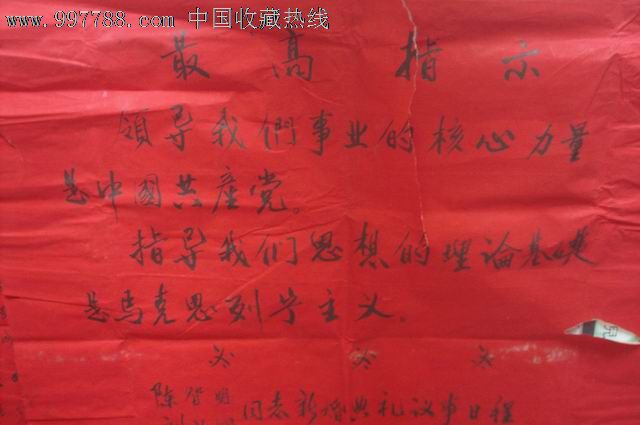 www.997788.com 中国收藏热线
最高指示
領导我們事业的核心力量
是中國共產党。
指导我们思想的理论基礎
是马克思列宁主义.
陈智明
同志新婚典礼议事日程